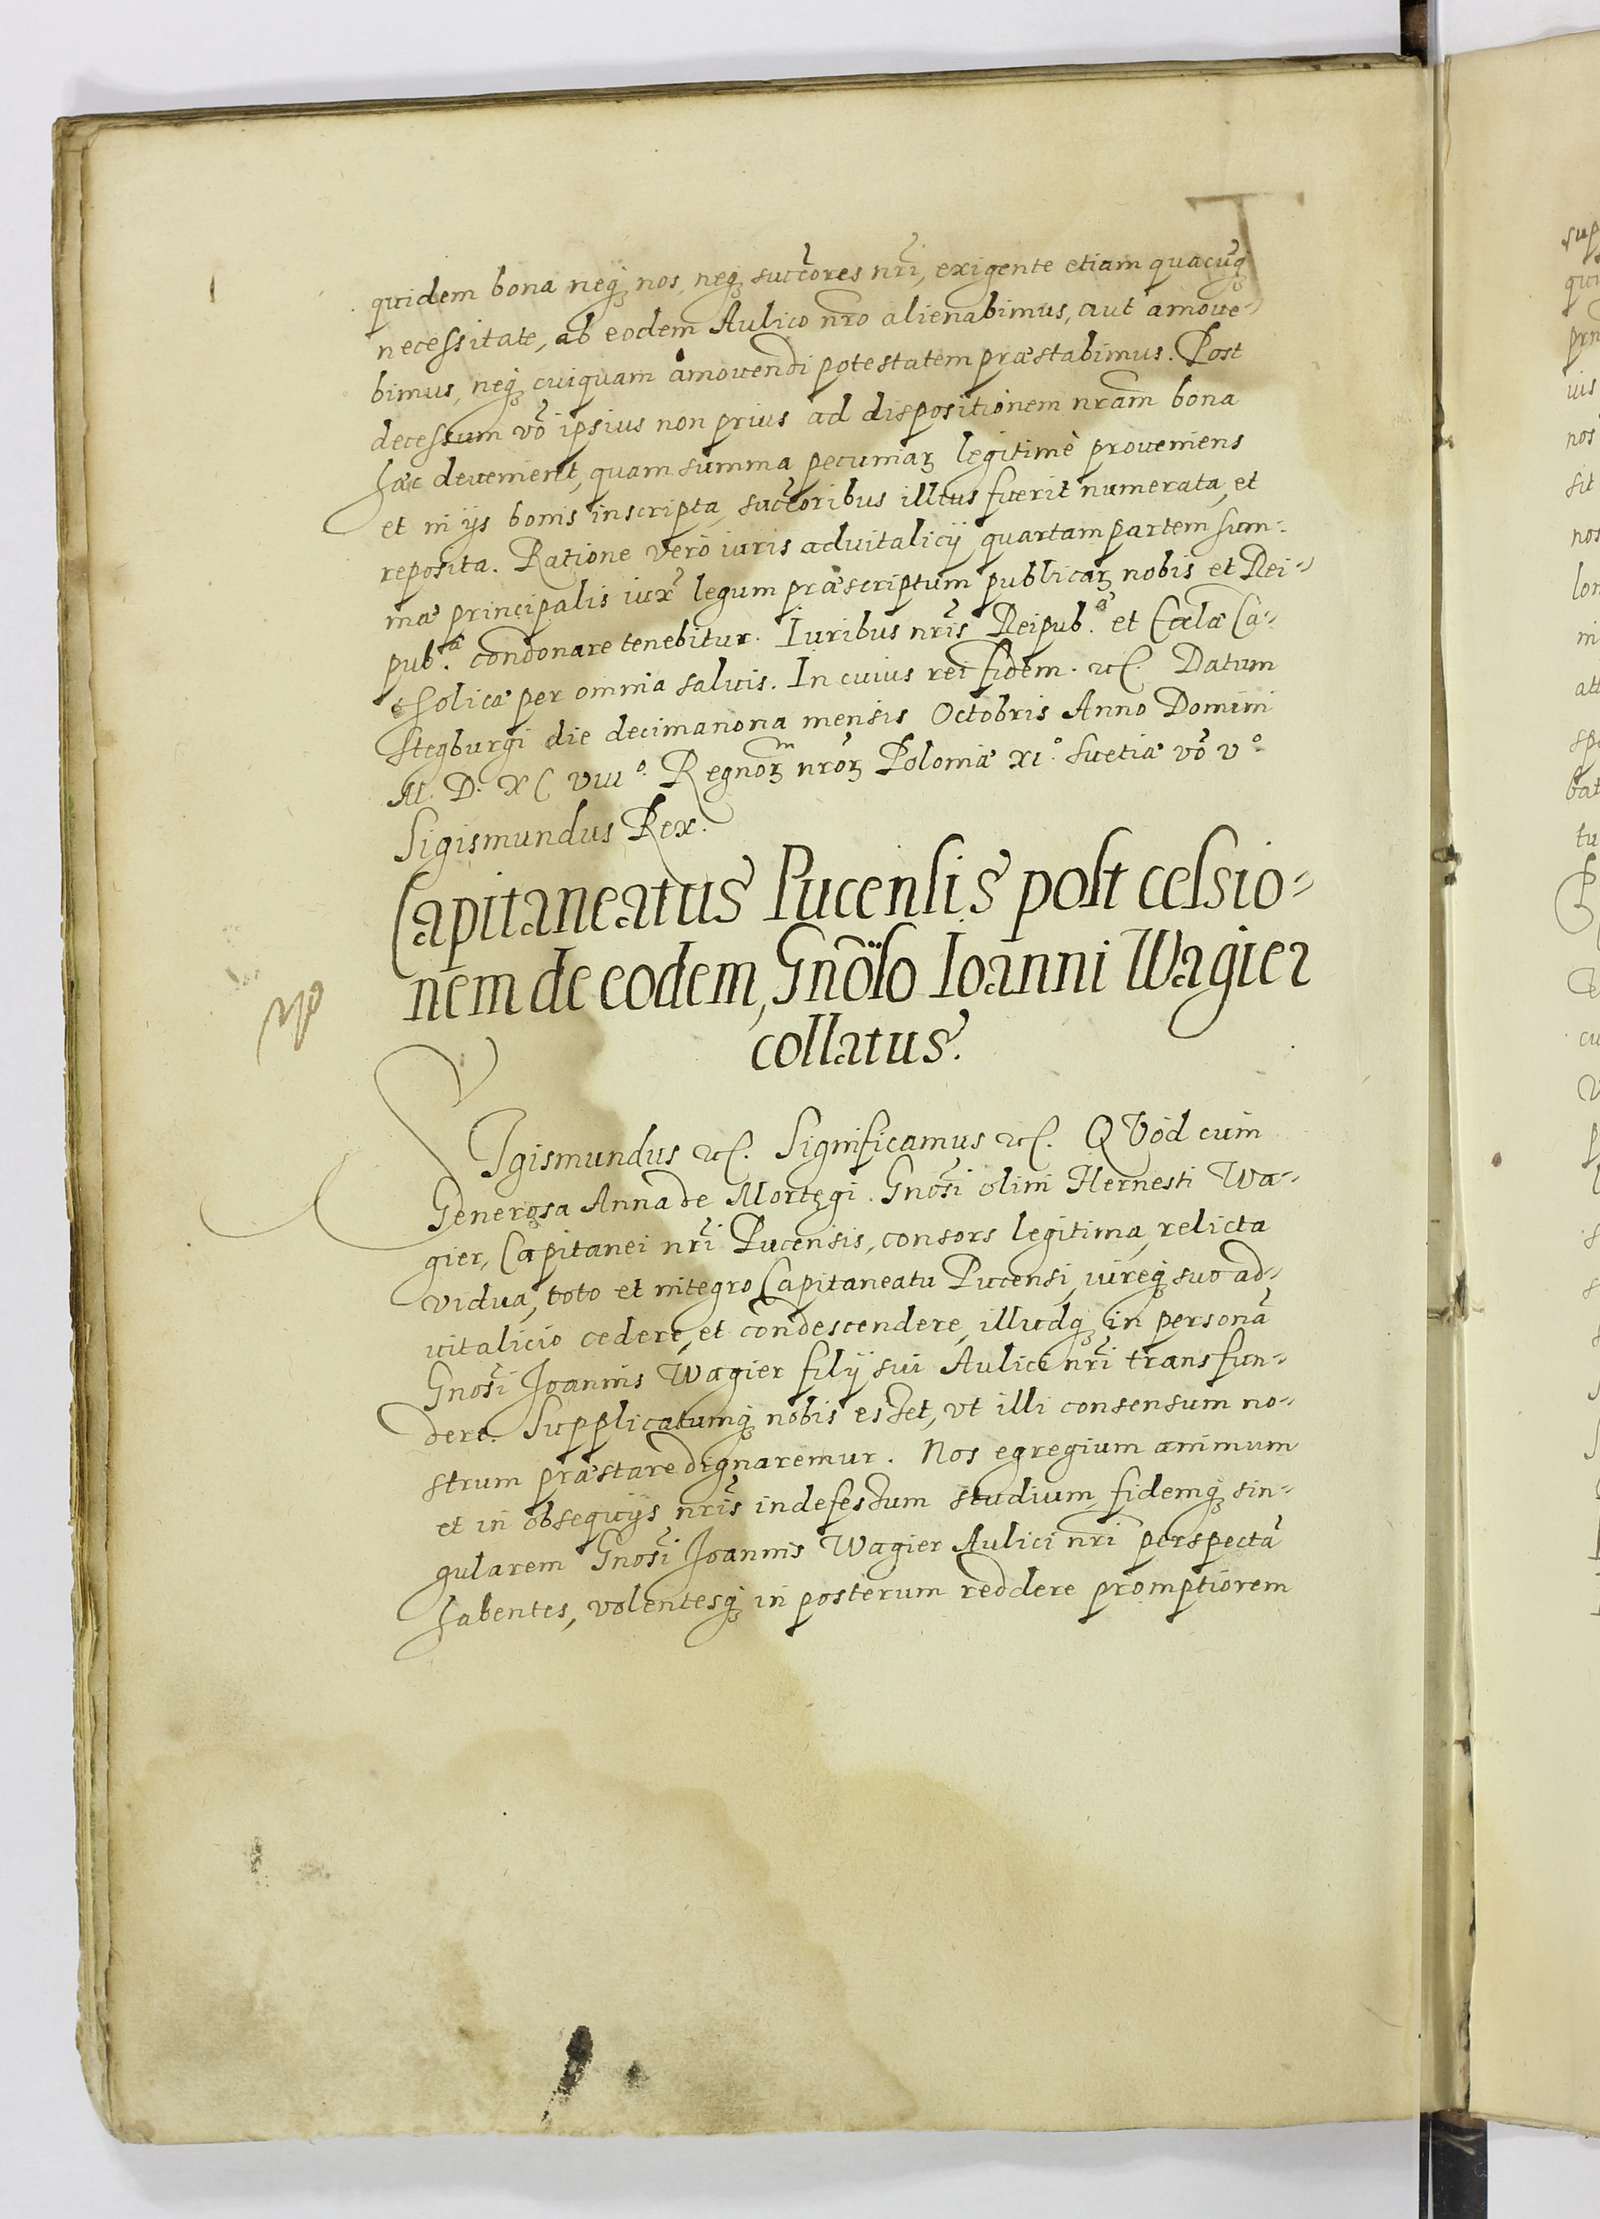 quidem bona neq₃ nos, neq₃ succ̃ores nr̃i, exigente etiam quacũq₃
necessitate, ab eodem Aulico nr̃o alienabimus, aut amoue-
bimus, neq₃ cuiquam amouendi potestatem præstabimus. Post
decessum võ ipsius non prius ad dispositionem nr̃am bona
hæc deuenient, quam summa pecuniaꝝ legitimè proueniens
et in ijs bonis inscripta, succ̃oribus illius fuerit numerata, et
reposita. Ratione verò iuris aduitalicij quartam partem sum-
mæ principalis iux̃ legum præscriptum publicaꝝ nobis et Rei-
pub.ᵃᵉ condonare tenebitur. Iuribus nr̃is Reipub.ᵃᵉ et Ecclæ Ca-
tholicæ per omnia saluis. In cuius rei fidem. ꝛc. Datum
Stegburgi die decimanona mensis Octobris Anno Domini
M. D. XC VIIIᵒ. Regnoꝝ nr̃oꝝ Poloniæ XIᵒ. Suetiæ võ Vᵒ.
Sigismundus Rex.
Capitaneatus Pucensis post celsio-
nem de eodem, Gñoso Ioanni Wagier
collatus.
SIgismundus ꝛc. Significamus ꝛc. QVod cum
Generosa Anna de Mortęgi. Gnosi olim Hernesti Wa-
gier, Capitanei nr̃i Pucensis, consors legitima, relicta
vidua, toto et integro Capitaneatu Pucensi, iureq₃ suo ad-
uitalicio cedere, et condescendere, illudq₃ in personã
Gnosi Joannis Wagier filij sui Aulici nr̃i transfun-
dere. Supplicatumq₃ nobis esset, vt illi consensum no-
strum præstare dignaremur. Nos egregium animum
et in obsequijs nr̃is indefessum studium, fidemq₃ sin-
gularem Gnosi Joannis Wagier Aulici nr̃i perspectã
habentes, volentesq₃ in posterum reddere promptiorem